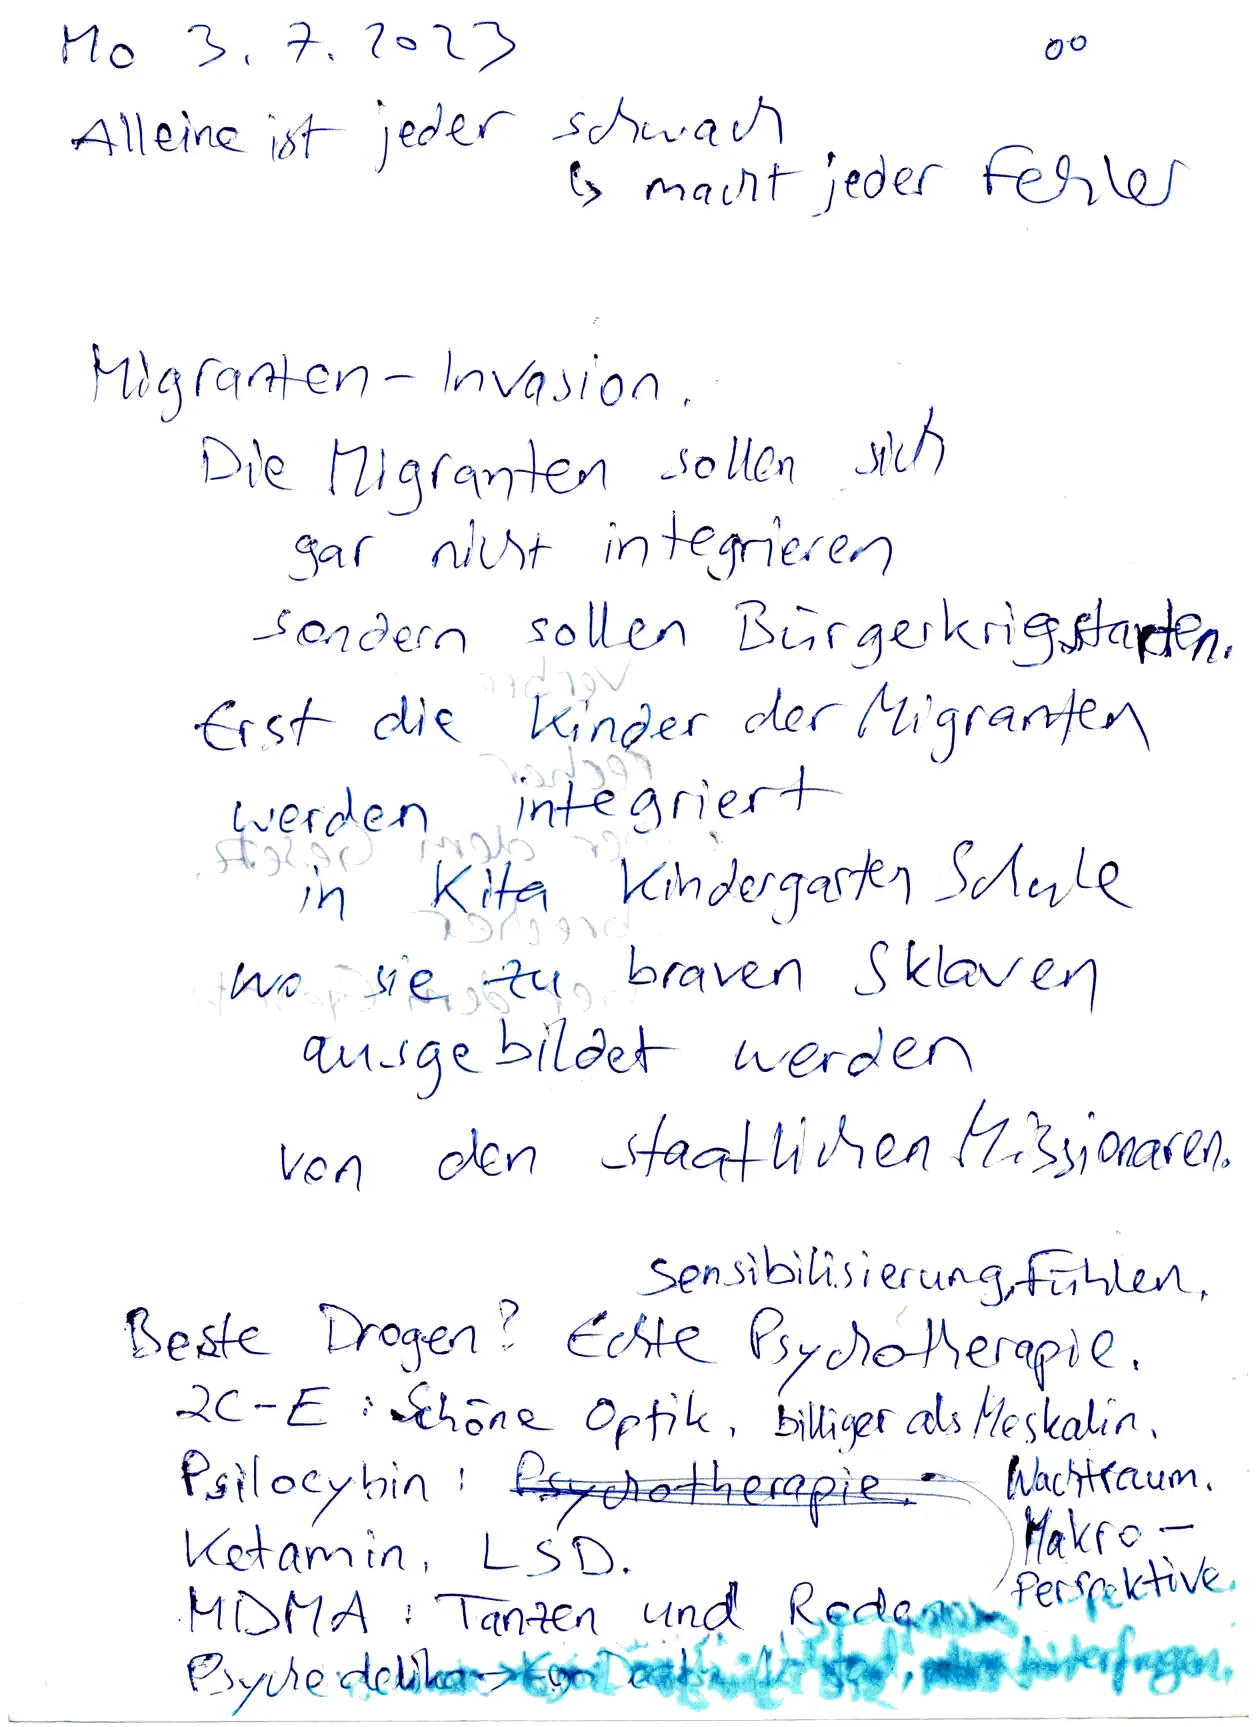 Mo 3.7.2023
Alleine ist jeder schwach
↳ macht jeder Fehler
Migranten-Invasion.
Die Migranten sollen sich
gar nicht integrieren
sondern sollen Bürgerkrieg starten.
Erst die Kinder der Migranten
werden integriert
in Kita Kindergarten Schule
wo sie zu braven Sklaven
ausgebildet werden
von den staatlichen Missionaren.
Sensibilisierung, Fühlen.
Beste Drogen? Echte Psychotherapie.
2C-E: Schöne Optik, billiger als Meskalin.
Psilocybin: Psychotherapie. Wachtraum.
Makro-
Perspektive.
Ketamin, LSD.
MDMA: Tanzen und Reden
Psychedelika → hinterfragen.